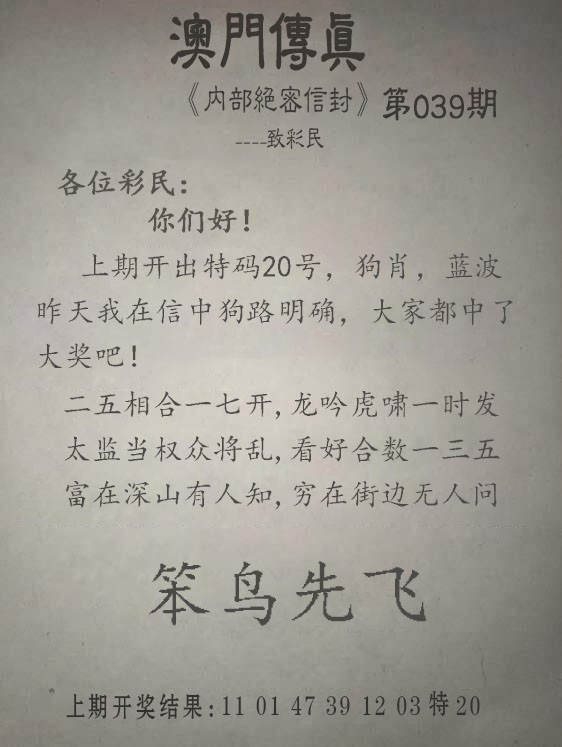 澳門傳真
《内部絕密信封》第039期
----致彩民
各位彩民:
你们好!
上期开出特码20号，狗肖，蓝波
昨天我在信中狗路明确，大家都中了
大奖吧!
二五相合一七开,龙吟虎啸一时发
太监当权众将乱,看好合数一三五
富在深山有人知,穷在街边无人问
笨鸟先飞
上期开奖结果:11 01 47 39 12 03特20